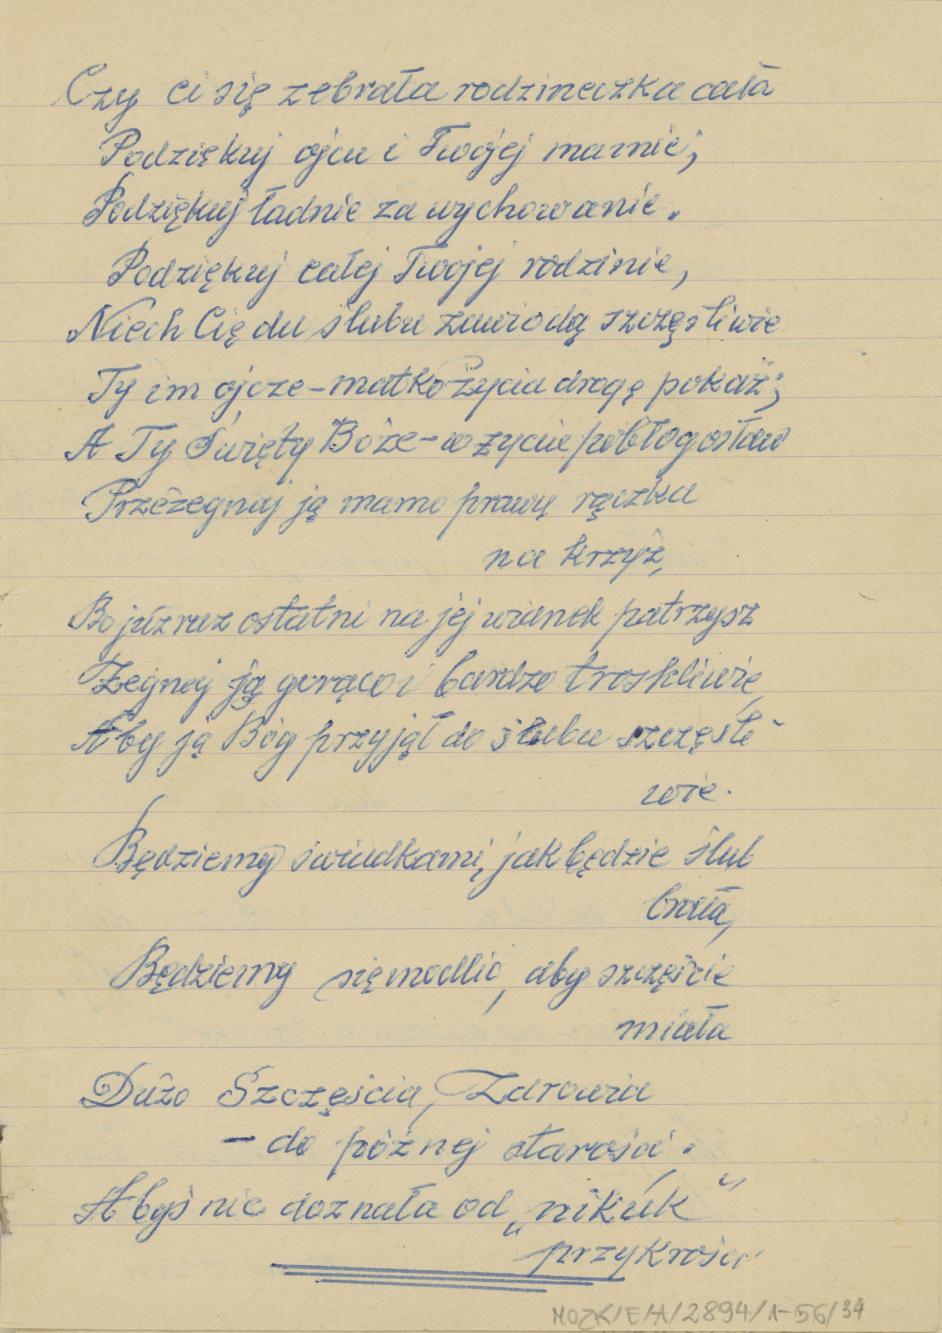 Czy ci się zebrała rodzineczka cała
Podziękuj ojcu i Twojej mamie,
Podziękuj ładnie za wychowanie.
Podziękuj całej Twojej rodzinie,
Niech Cię du ślubu zawiodą szczęśliwie
Ty im ojcze-matko życia drogę pokaż;
A Ty Święty Boże - w życiu pobłogosław
Przeżegnaj ją mamo prawą rączką
na krzyż,
Bo już raz ostatni na jej wianek patrzysz
Żegnaj ją gorąco i bardzo troskliwie,
Aby ją Bóg przyjął do ślubu szczęśli-
wie.
Będziemy świadkami, jak będzie ślub
brała,
Będziemy się modlić, aby szczęście
miała
Dużo Szczęścia, Zdrowia
- do późnej starości.
Abyś nie doznała od „nikuk”
przykrości
MOZK/E/A/2894/1-56/34